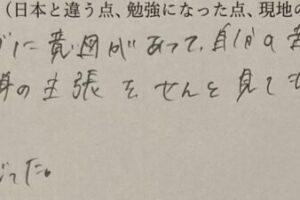 （日本と違う点、勉強になった点、現地の
に意図があって、自分の
の主張を、せんと見ても
った。